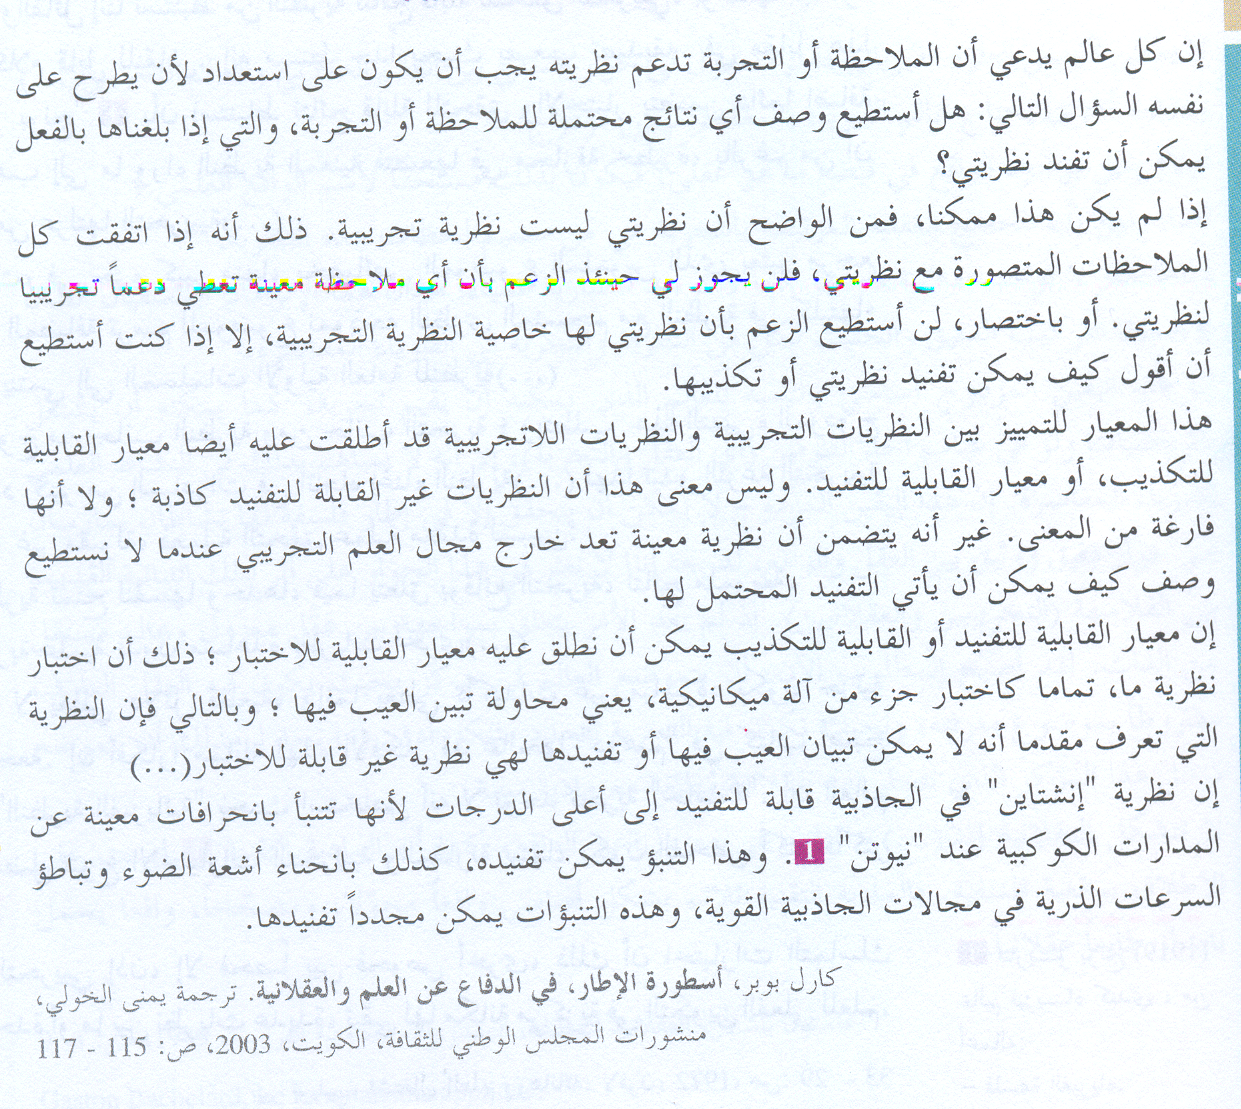 إن كل عالم يدعي أن الملاحظة أو التجربة تدعم نظريته يجب أن يكون على استعداد لأن يطرح على
نفسه السؤال التالي: هل أستطيع وصف أي نتائج محتملة للملاحظة أو التجربة، والتي إذا بلغناها بالفعل
يمكن أن تفند نظريتي؟
إذا لم يكن هذا ممكنا، فمن الواضح أن نظريتي ليست نظرية تجريبية. ذلك أنه إذا اتفقت كل
الملاحظات المتصورة مع نظريتي، فلن يجوز لي حينئذ الزعم بأن أي ملاحظة معينة تعطي دعماً تجريبيا
لنظريتي. أو باختصار، لن أستطيع الزعم بأن نظريتي لها خاصية النظرية التجريبية، إلا إذا كنت أستطيع
أن أقول كيف يمكن تفنيد نظريتي أو تكذيبها.
هذا المعيار للتمييز بين النظريات التجريبية والنظريات اللاتجريبية قد أطلقت عليه أيضا معيار القابلية
للتكذيب، أو معيار القابلية للتفنيد. وليس معنى هذا أن النظريات غير القابلة للتفنيد كاذبة ؛ ولا أنها
فارغة من المعنى. غير أنه يتضمن أن نظرية معينة تعد خارج مجال العلم التجريبي عندما لا نستطيع
وصف كيف يمكن أن يأتي التفنيد المحتمل لها.
إن معيار القابلية للتفنيد أو القابلية للتكذيب يمكن أن نطلق عليه معيار القابلية للاختبار ؛ ذلك أن اختبار
نظرية ما، تماما كاختبار جزء من آلة ميكانيكية، يعني محاولة تبين العيب فيها ؛ وبالتالي فإن النظرية
التي تعرف مقدما أنه لا يمكن تبيان العيب فيها أو تفنيدها لهي نظرية غير قابلة للاختبار(...)
إن نظرية "إنشتاين" في الجاذبية قابلة للتفنيد إلى أعلى الدرجات لأنها تتنبأ بانحرافات معينة عن
المدارات الكوكبية عند "نيوتن" 1. وهذا التنبؤ يمكن تفنيده، كذلك بانحناء أشعة الضوء وتباطؤ
السرعات الذرية في مجالات الجاذبية القوية، وهذه التنبؤات يمكن مجدداً تفنيدها.
كارل بوبر، أسطورة الإطار، في الدفاع عن العلم والعقلانية. ترجمة يمنى الخولي،
منشورات المجلس الوطني للثقافة، الكويت، 2003، ص: 115 - 117